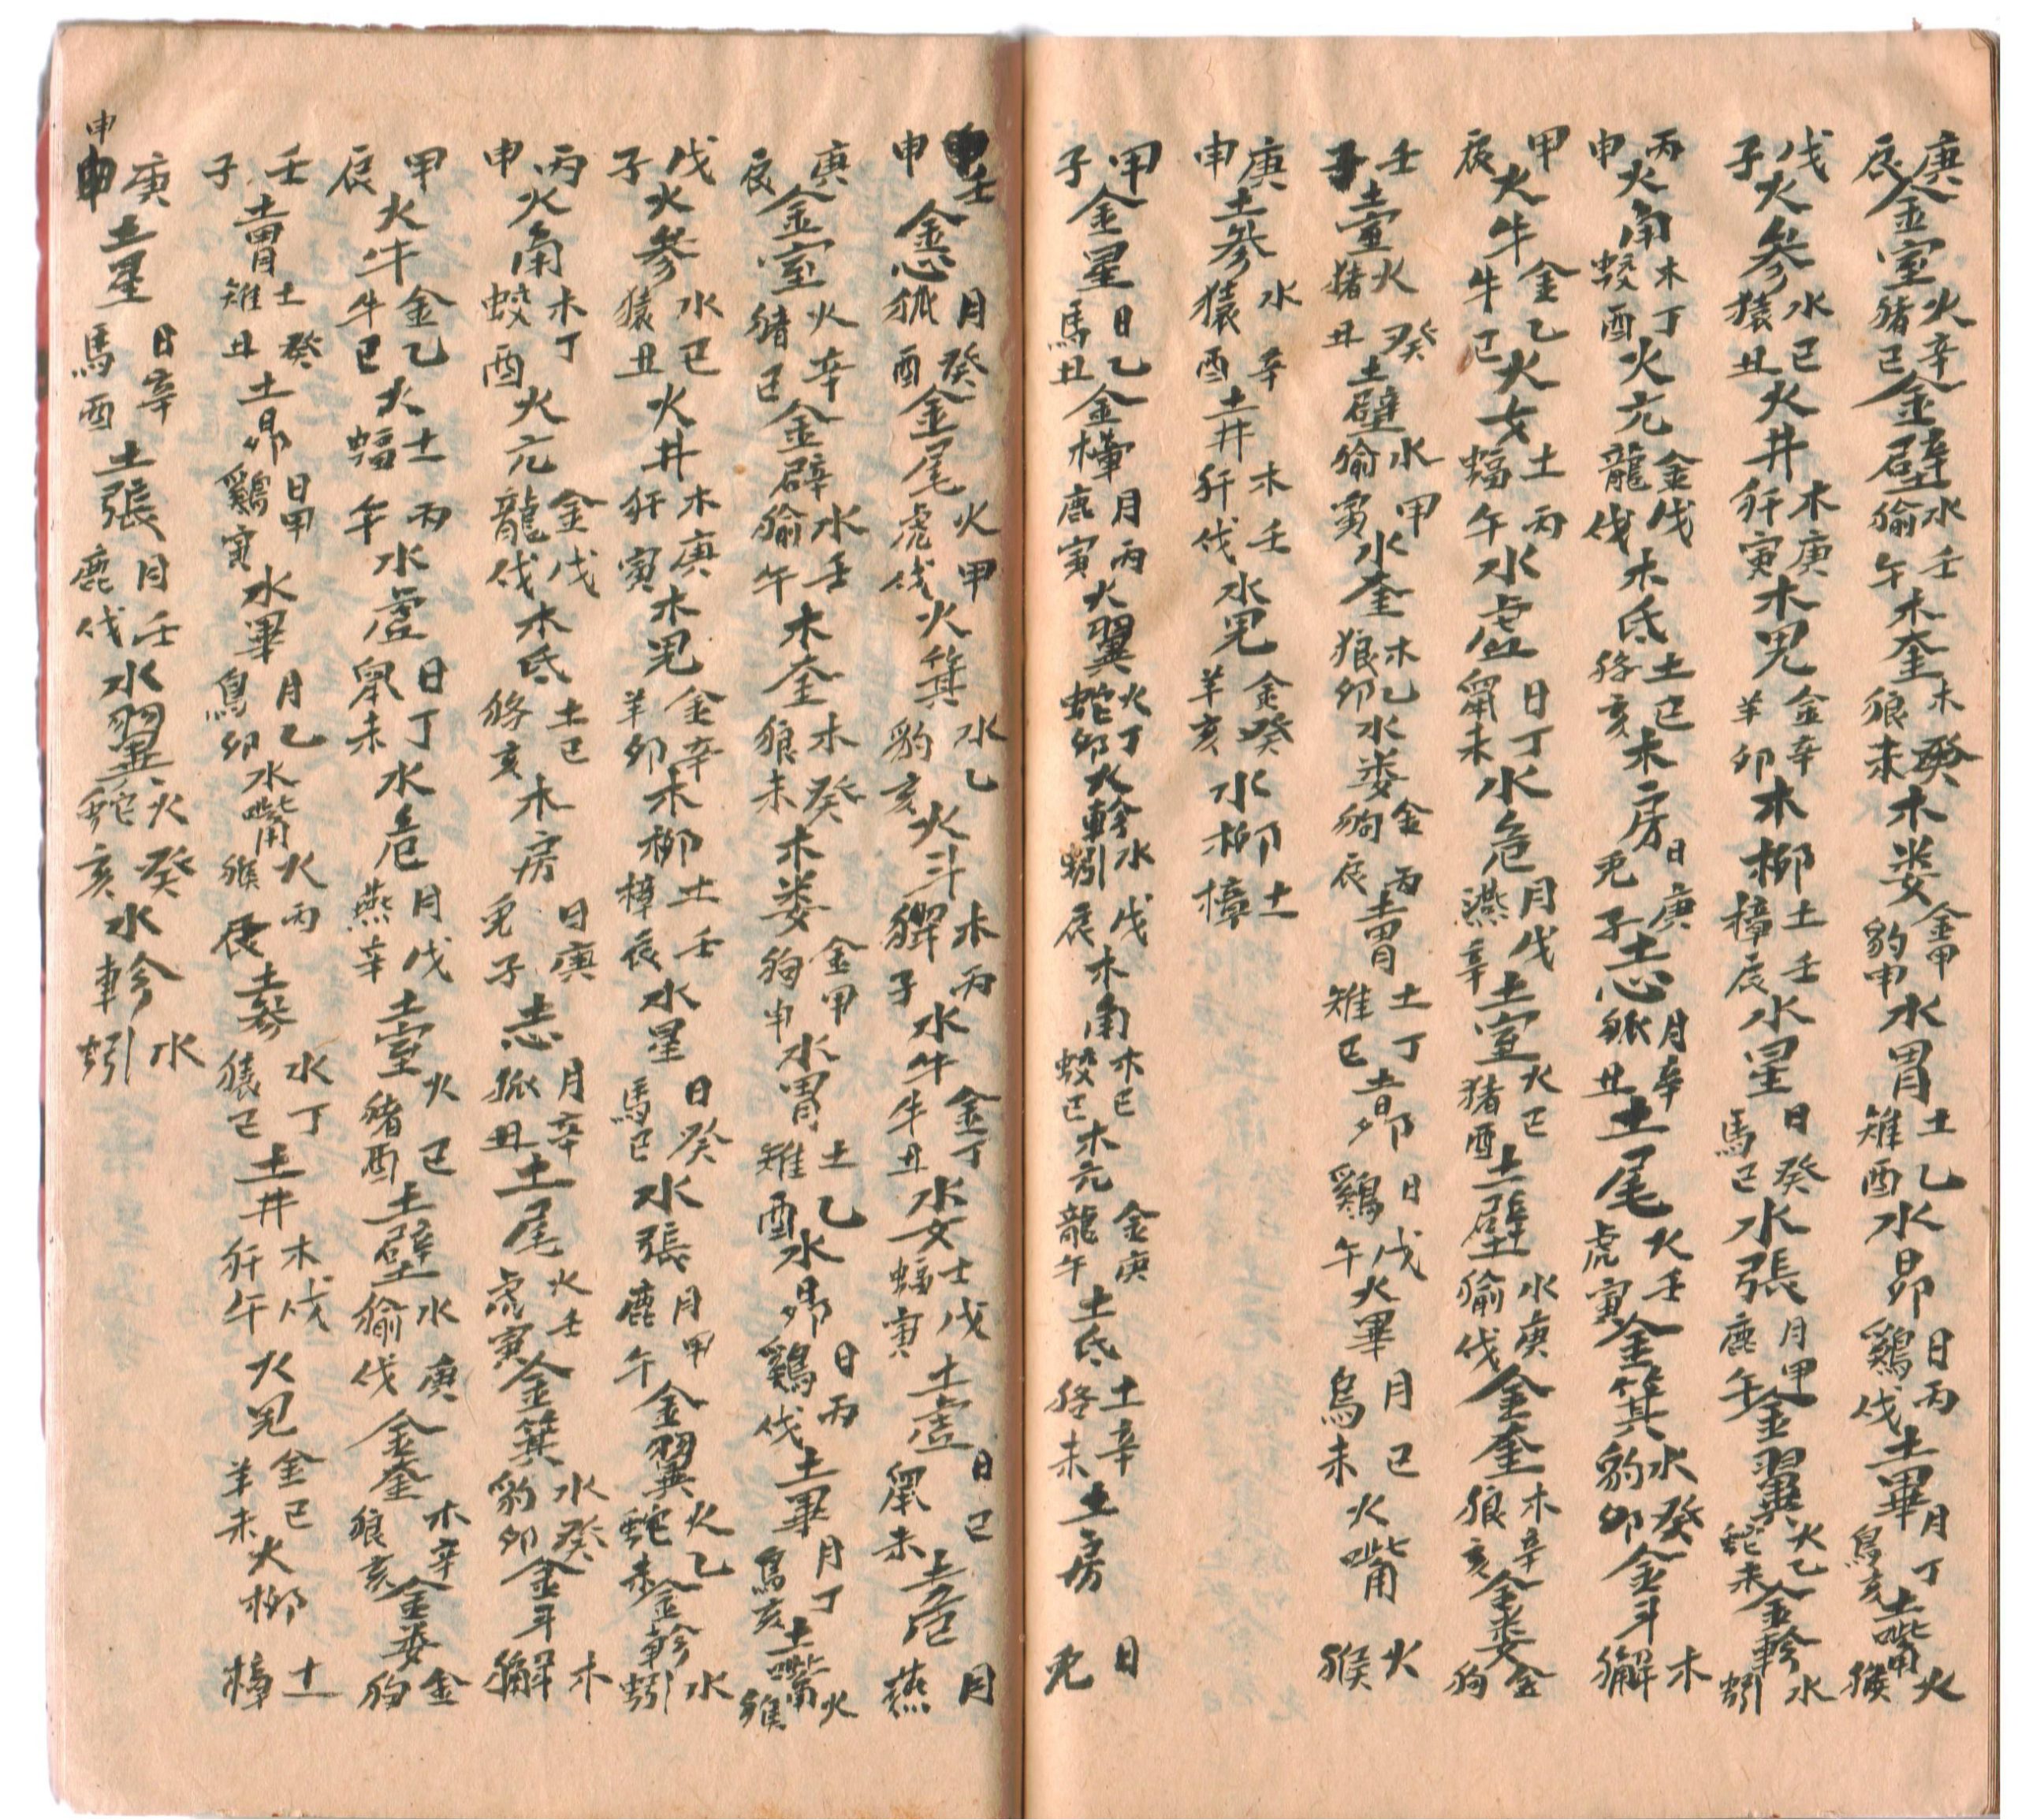 庚辰金室火猪辛巳金壁水㺄壬午木奎木狼癸未木娄金豹甲申水胃土雉乙酉水昴日鷄丙伐土畢月鳥丁亥土嘴火猴
戊子火參水猿己丑火井木犴庚寅木鬼金羊辛卯木柳土樟壬辰水星日馬癸巳水張月鹿甲午金翼火蛇乙未金軫水蚓
丙申火角木蛟丁酉火亢金龍戊伐木氐土狢己亥木房日兎庚子土心月狐辛丑土尾火虎壬寅金箕水豹癸卯金斗木獬
甲辰火牛金牛乙巳火女土蝠丙午水虚日鼠丁未水危月燕戊辛土室火猪己酉土壁水㺄庚伐金奎木狼辛亥金娄金狗
壬子土室火猪癸丑土壁水㺄甲寅水奎木狼乙卯水娄金狗丙辰土胃土雉丁巳土昴日鷄戊午火畢月烏己未火嘴火猴
庚申土參水猿辛酉土井木犴壬伐水鬼金羊癸亥水柳土樟
甲子金星日馬乙丑金張月鹿丙寅火翼火蛇丁卯火軫水蚓戊辰木角木蛟己巳木亢金龍庚午土氐土狢辛未土房日兎
壬申金心月狐癸酉金尾火虎甲伐火箕水豹乙亥火斗木獬丙子水牛金牛丁丑水女土蝠戊寅土虚日鼠己未土危月燕
庚辰金室火猪辛巳金壁水㺄壬午木奎木狼癸未木娄金狗甲申水胃土雉乙酉水昴日鷄丙伐土畢月烏丁亥土嘴火猴
戊子火參水猿己丑火井木犴庚寅木鬼金羊辛卯木柳土樟壬辰水星日馬癸巳水張月鹿甲午金翼火蛇乙未金軫水蚓
丙申火角木蛟丁酉火亢金龍戊伐木氐土狢己亥木房日兎庚子土心月狐辛丑土尾火虎壬寅金箕水豹癸卯金斗木獬
甲辰火牛金牛乙巳火土蝠丙午水虚日鼠丁未水危月燕戊辛土室火猪己酉土壁水㺄庚伐金奎木狼辛亥金娄金狗
壬子土胃土雉癸丑土昴日鷄甲寅水畢月鳥乙卯水嘴火猴丙辰土參水猿丁巳土井木犴戊午火鬼金羊己未火柳土樟
庚申土星日馬辛酉土張月鹿壬伐水翼火蛇癸亥水軫水蚓